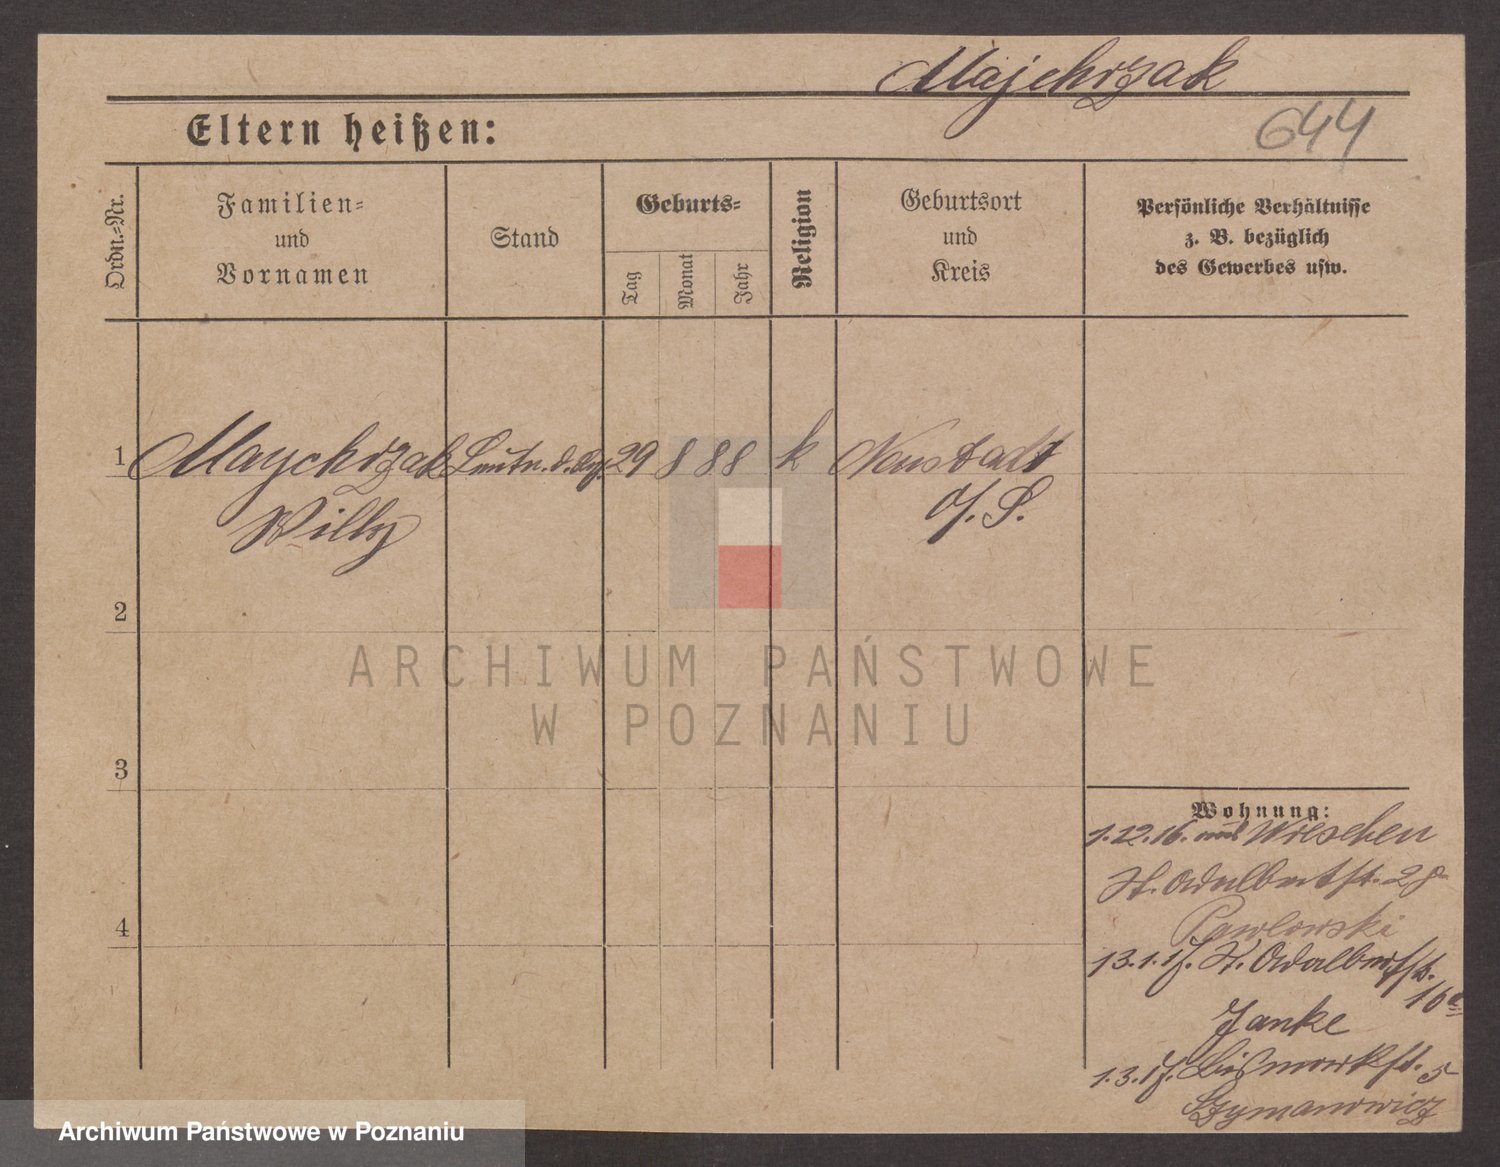 Majchrzak
644
Eltern heißen:
Ordn.-Nr.
Familien-
und
Vornamen
Stand
Geburts-
Tag
Monat
Jahr
Religion
Geburtsort
und
Kreis
Persönliche Verhältnisse
z. B. bezüglich
des Gewerbes usw.
1 Maychrzak Leutn. d. 29 8 88 k Neustadt
Willy O/. S.
2
3
4
Wohnung:
1.12.16. aus Wreschen
St. Adalbertst. 28
Pawlowski
13.1.17. St. Adalbertst.
16a
Janke
1.3.17. Bismarckst. 5
Szymanowicz
ARCHIWUM PAŃSTWOWE
W POZNANIU
Archiwum Państwowe w Poznaniu